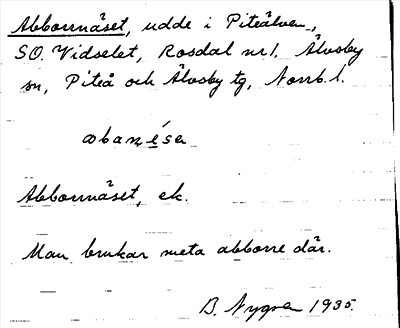 Abborrnäset, udde i Piteälven,
SO. Vidselet, Rosdal nr 1, Älvsby
sn, Piteå och Älvsby tg, Norrb. l.
abanésa
Abborrnäset, ek.
Man brukar meta abborre där.
B. Nygren 1935.